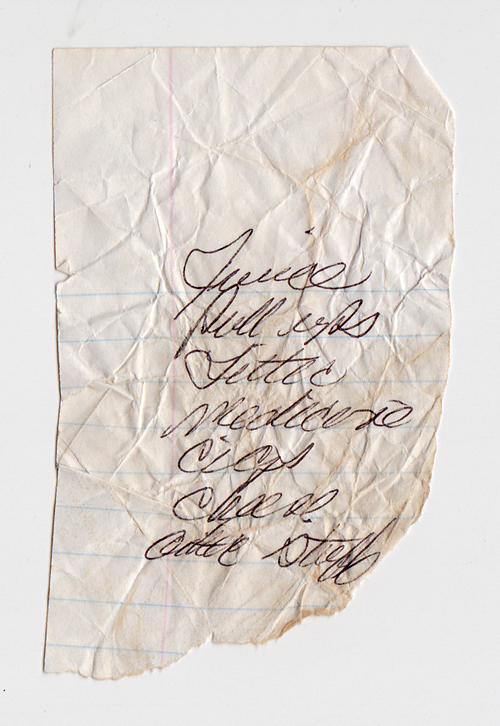 Juice
pull ups
Litter
medicine
cigs
cheese
other stuff